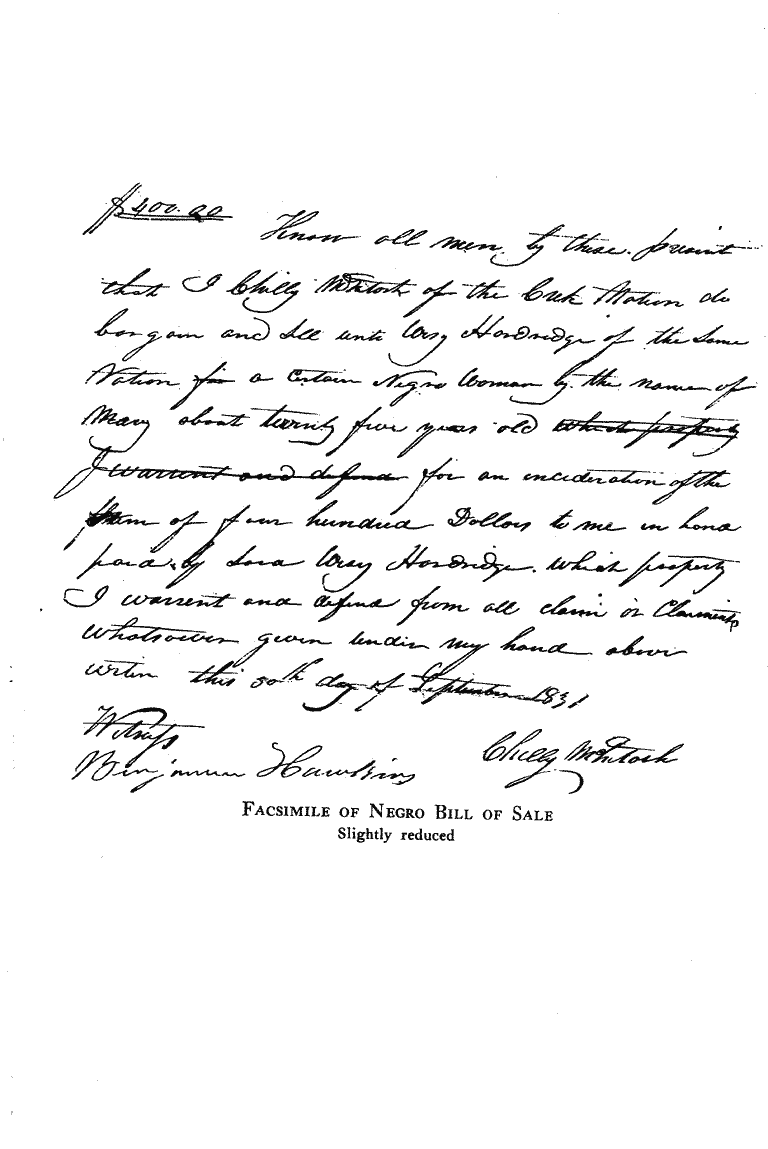 $400.00
Know all men by these present
that I Chilly McIntosh of the Crek Nation do
bargain and sell unto Wesy Hardridge of the Same
Nation for a certain Negro Woman by the name of
Mary about twenty five years old which property
I warrent and defend for an incideration of the
Sum of four hundred Dollors to me in hand
paid by Said Wesy Hardridge. which property
I warrent and defend from all claim or Claiments
whatsoever given under my hand above
writen this 30th day of September 1831
Witness
Benjamin Hawkins
Chilly McIntosh
FACSIMILE OF NEGRO BILL OF SALE
Slightly reduced